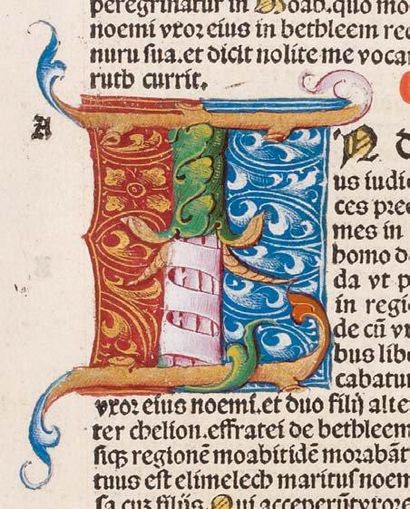 peregrinatur in Moab. quo mo
noemi vxor eius in bethleem re
nuru sua. et dicit nolite me voca
ruth currit.
A
I N d
us iudi
ces pree
mes in
homo d
da vt p
in regi
de cū v
bus lib
cabatur
vxor eius noemi. et duo filij alte
ter chelion. effratei de bethleem
siqꝫ regionē moabitidē morabāt
tuus est elimelech maritus noem
sa cuꝫ filijs. Qui acceperūt vxore